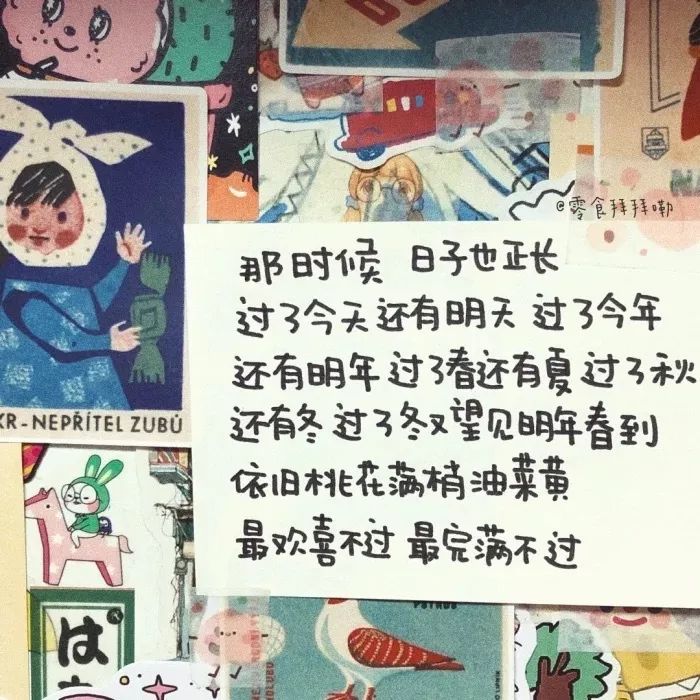 @零食拜拜嘞
那时候 日子也正长
过了今天还有明天 过了今年
还有明年 过了春还有夏 过了秋
还有冬 过了冬又望见明年春到
依旧桃花满梢油菜黄
最欢喜不过 最完满不过
KR-NEPŘÍTEL ZUBŮ
は